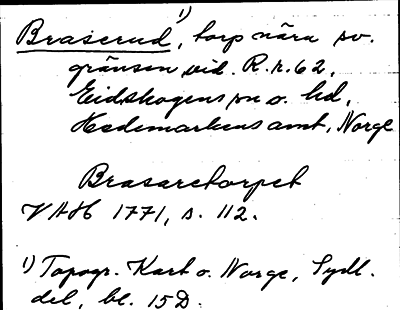 1)
Braserud, torp nära sv.
gränsen vid R.r. 62,
Eidskogens sn o. hd,
Hedemarkens amt, Norge
Brasaretorpet
VAH 1771, s. 112.
1) Topogr. Kart o. Norge, Sydl.
del, bl. 15D.